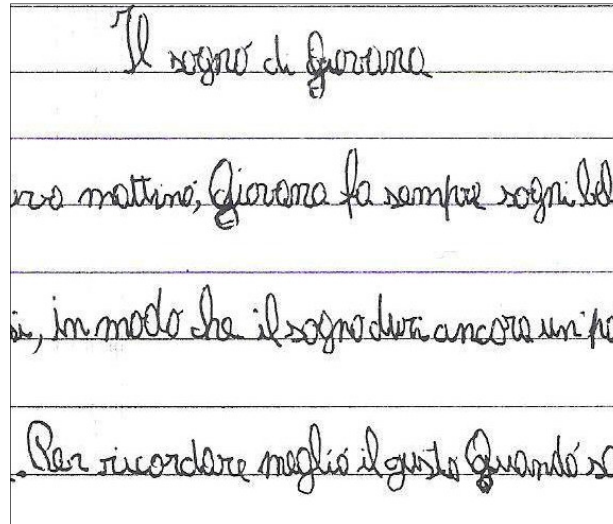 Il sogno di Giovana
mattino, Giovana fa sempre sogni bel
si, in modo che il sogno duri ancora un po
. Per ricordare meglio il gusto Quando so